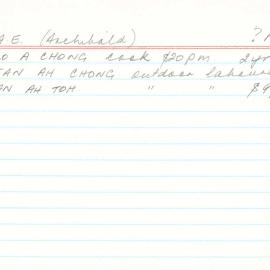 A E. (Archibald) ?
O A CHONG cook $20pm 2yr
TAN AH CHONG outdoor labour
AN AH TOH " " $9